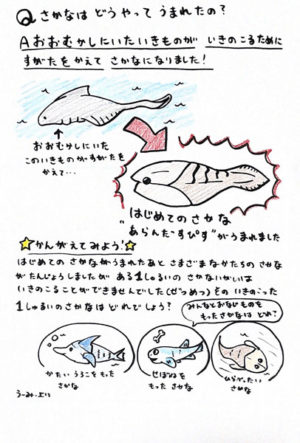 Q さかなは どうやって うまれたの？
A おおむかしにいたいきものが いきのこるために
すがたを かえて さかなに なりました！
↑
おおむかしにいた
このいきものがすがたを
かえて…
はじめてのさかな
"あらんだすぴす"がうまれました
かんがえてみよう！
はじめての さかながうまれたあと さまざまなかたちの さかな
がたんじょうしましたが ある1しゅるいの さかないがいは
いきのこることができませんでした(ぜつめつ) その いきのこった
1しゅるいのさかなは どれでしょう？
みんなとおなじものを
もったさかなは どれ？
かたい うろこを もった
さかな
せぼねを
もった さかな
ひらべったい
さかな